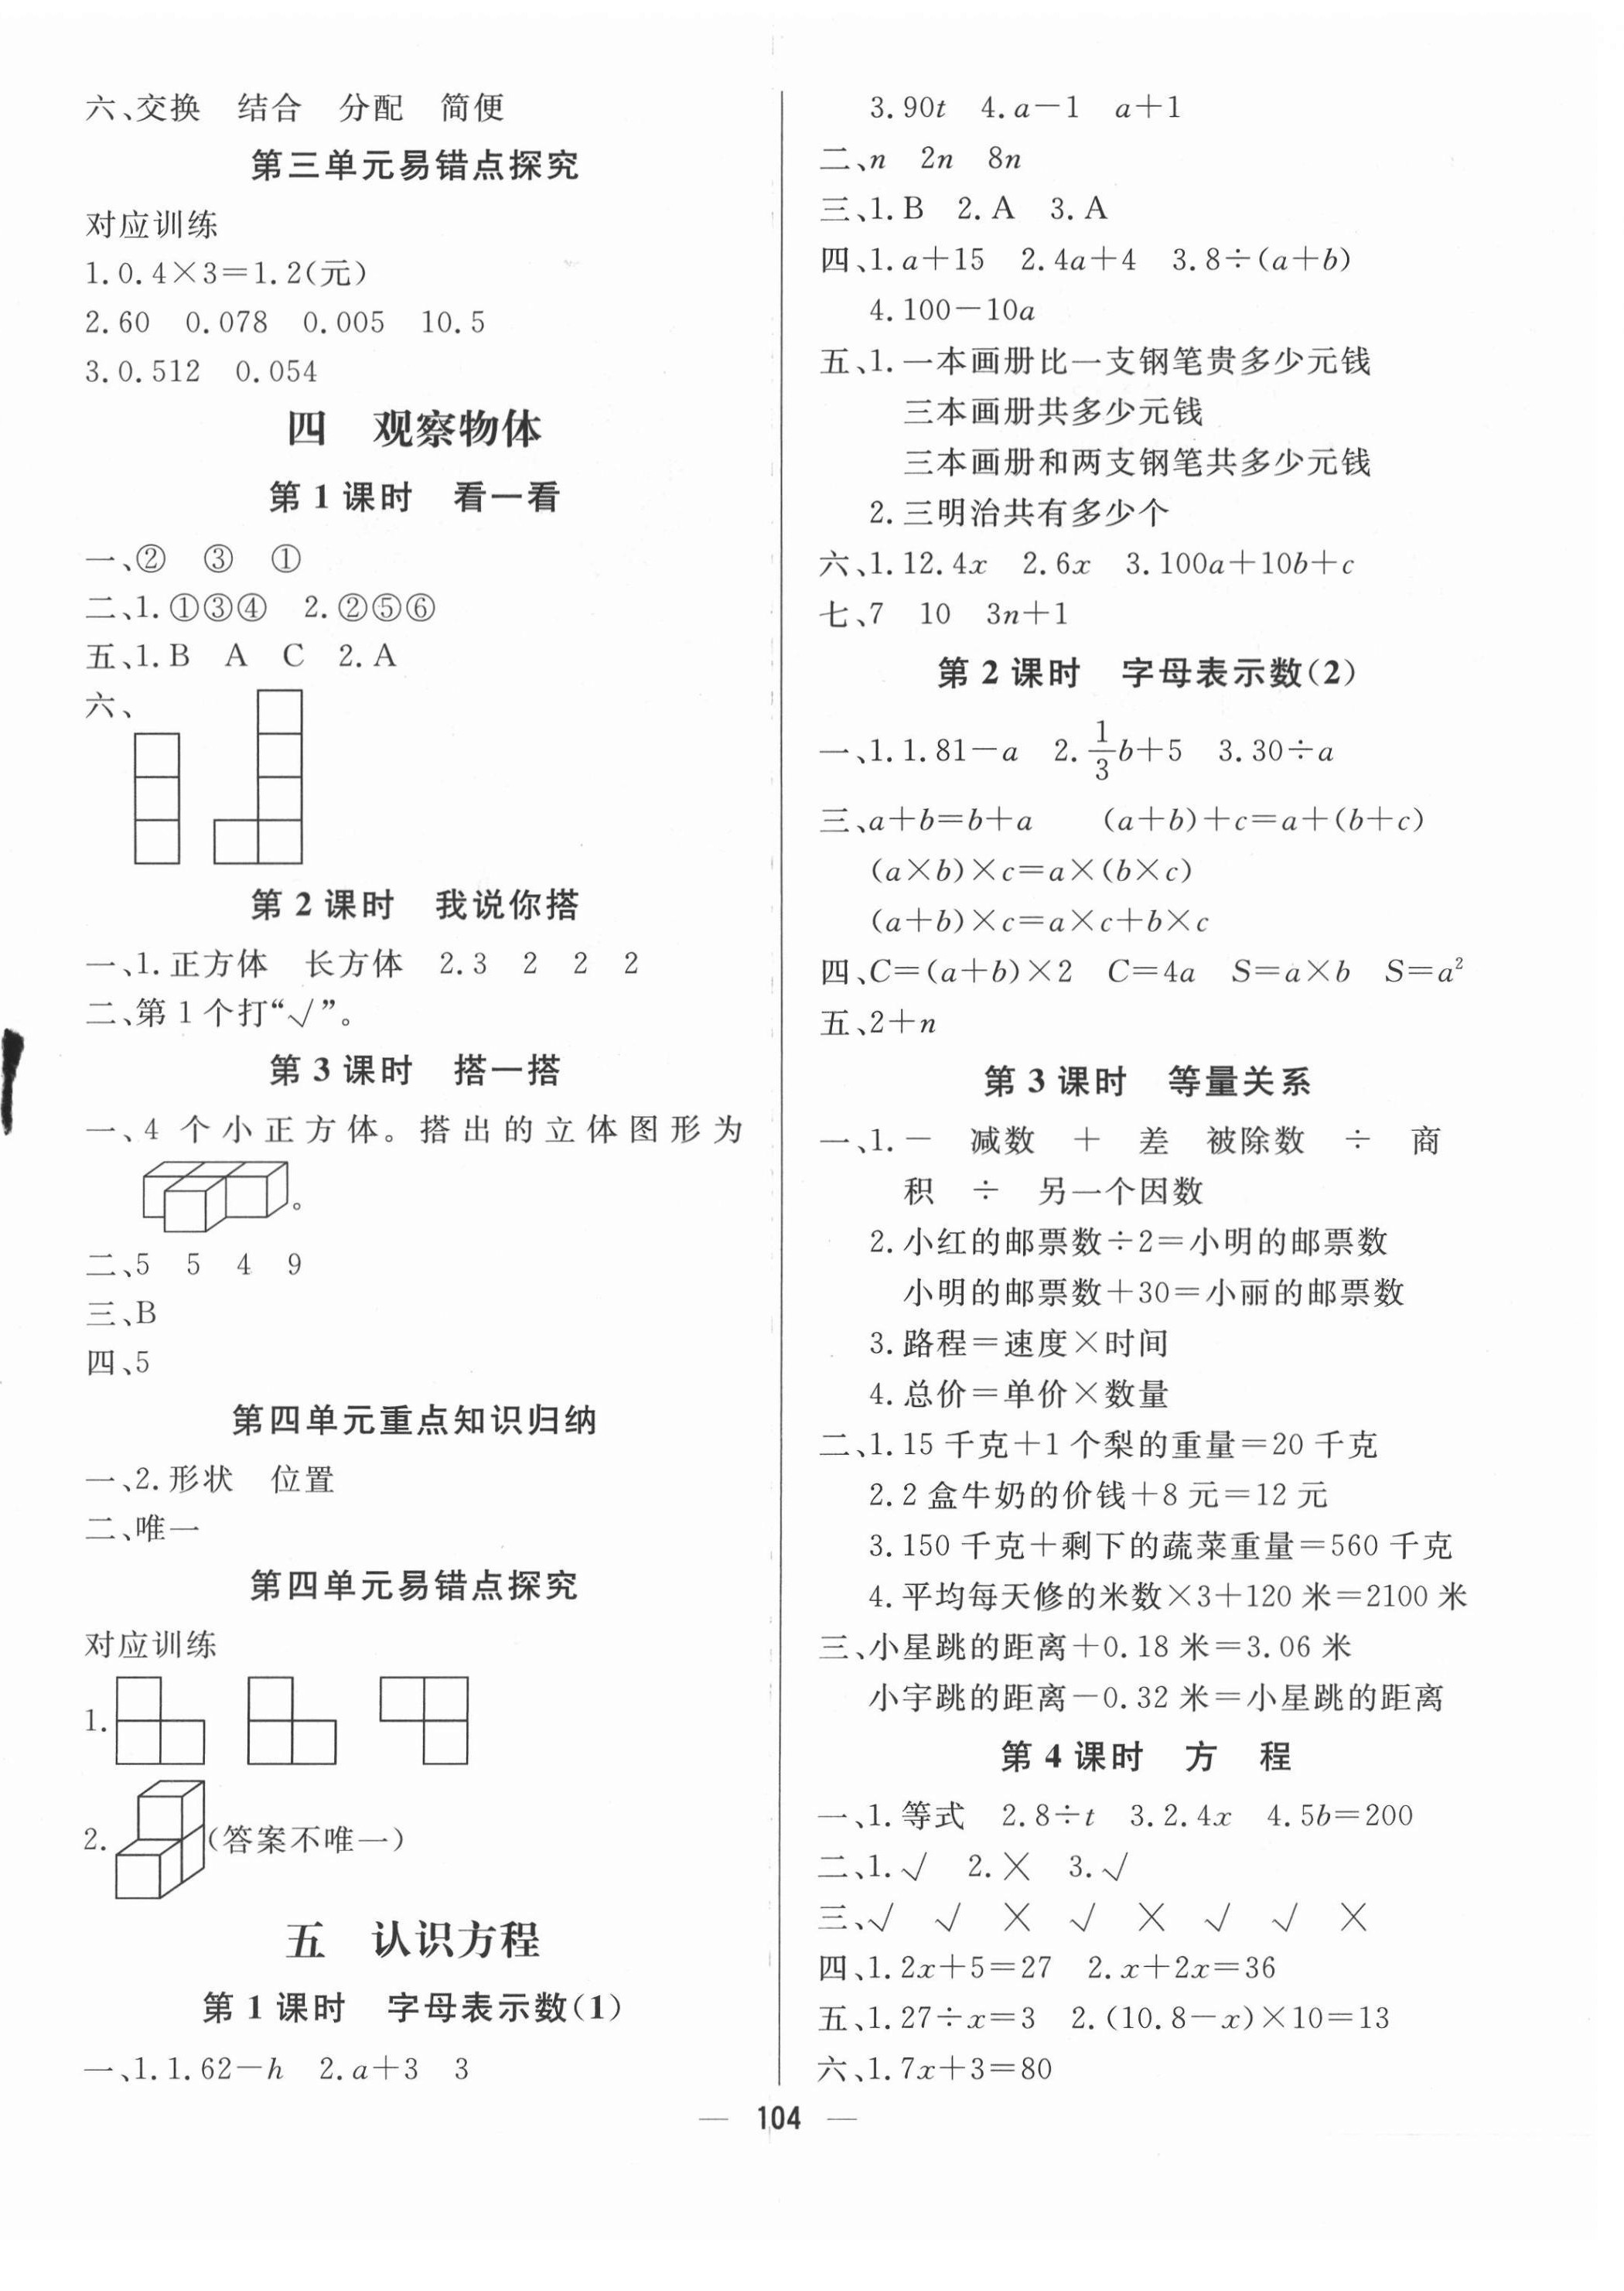 六、交换 结合 分配 简便
第三单元易错点探究
对应训练
1.0.4×3=1.2(元)
2.60 0.078 0.005 10.5
3.0.512 0.054
四 观察物体
第1课时 看一看
一、② ③ ①
二、1.①③④ 2.②⑤⑥
五、1.B A C 2.A
六、
第2课时 我说你搭
一、1.正方体 长方体 2.3 2 2 2
二、第1个打“√”。
第3课时 搭一搭
一、4个小正方体。搭出的立体图形为
。
二、5 5 4 9
三、B
四、5
第四单元重点知识归纳
一、2.形状 位置
二、唯一
第四单元易错点探究
对应训练
1.
2.(答案不唯一)
五 认识方程
第1课时 字母表示数(1)
一、1.1.62-h 2.a+3 3
3.90t 4.a-1 a+1
二、n 2n 8n
三、1.B 2.A 3.A
四、1.a+15 2.4a+4 3.8÷(a+b)
4.100-10a
五、1.一本画册比一支钢笔贵多少元钱
三本画册共多少元钱
三本画册和两支钢笔共多少元钱
2.三明治共有多少个
六、1.12.4x 2.6x 3.100a+10b+c
七、7 10 3n+1
第2课时 字母表示数(2)
一、1.1.81-a 2.1/3b+5 3.30÷a
三、a+b=b+a (a+b)+c=a+(b+c)
(a×b)×c=a×(b×c)
(a+b)×c=a×c+b×c
四、C=(a+b)×2 C=4a S=a×b S=a²
五、2+n
第3课时 等量关系
一、1.- 减数 + 差 被除数 ÷ 商
积 ÷ 另一个因数
2.小红的邮票数÷2=小明的邮票数
小明的邮票数+30=小丽的邮票数
3.路程=速度×时间
4.总价=单价×数量
二、1.15千克+1个梨的重量=20千克
2.2盒牛奶的价钱+8元=12元
3.150千克+剩下的蔬菜重量=560千克
4.平均每天修的米数×3+120米=2100米
三、小星跳的距离+0.18米=3.06米
小宇跳的距离-0.32米=小星跳的距离
第4课时 方 程
一、1.等式 2.8÷t 3.2.4x 4.5b=200
二、1.√ 2.× 3.√
三、√ √ × √ × √ √ ×
四、1.2x+5=27 2.x+2x=36
五、1.27÷x=3 2.(10.8-x)×10=13
六、1.7x+3=80
— 104 —